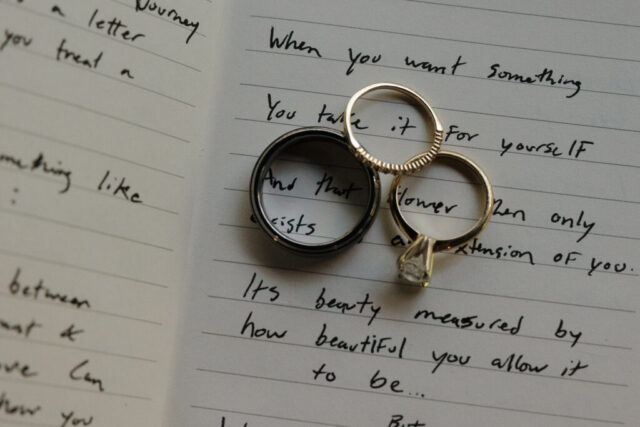 Journey
a letter
you treat a
something like
:
between
&
can
how you
When you want something
You take it for yourself
And that flower then only
exists as an extension of you.
Its beauty measured by
how beautiful you allow it
to be...
But